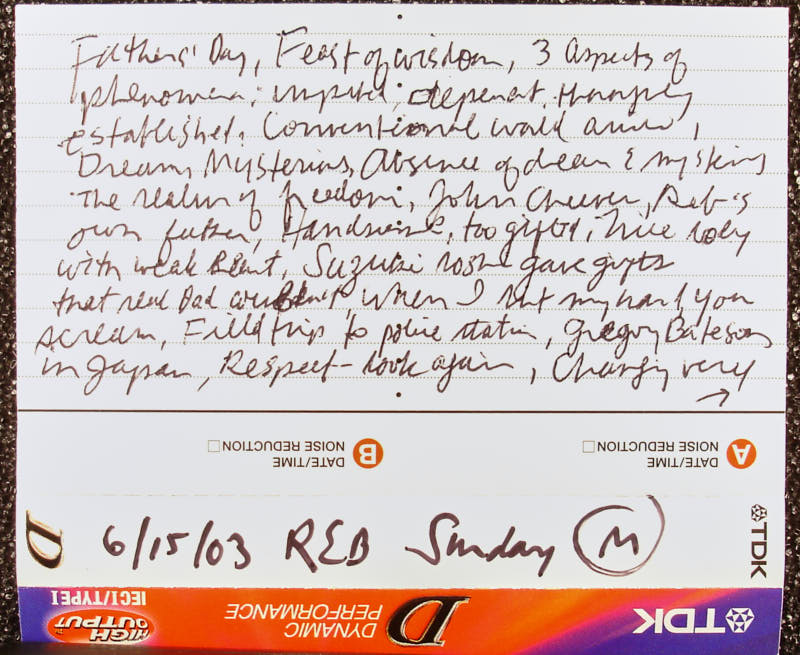 Fathers' Day, Feast of wisdom, 3 aspects of
phenomena; imputed; dependent, thoroughly
established. Conventional world
Dream, Mysterious, Absence of dream & mystery
The realm of freedom, John Cheever, Reb's
own father, Handsome, too gifted, Nice
with weak, Suzuki roshi gave gifts
that real Dad couldn't, When I hurt my hand you
scream, Field trip to police station, Gregory Bateson
in Japan, Respect - look again, Changing very
→
B DATE/TIME
NOISE REDUCTION
A DATE/TIME
NOISE REDUCTION
D 6/15/03 REB Sunday (M) TDK
HIGH OUTPUT
IECI/TYPEI
DYNAMIC PERFORMANCE
D
TDK